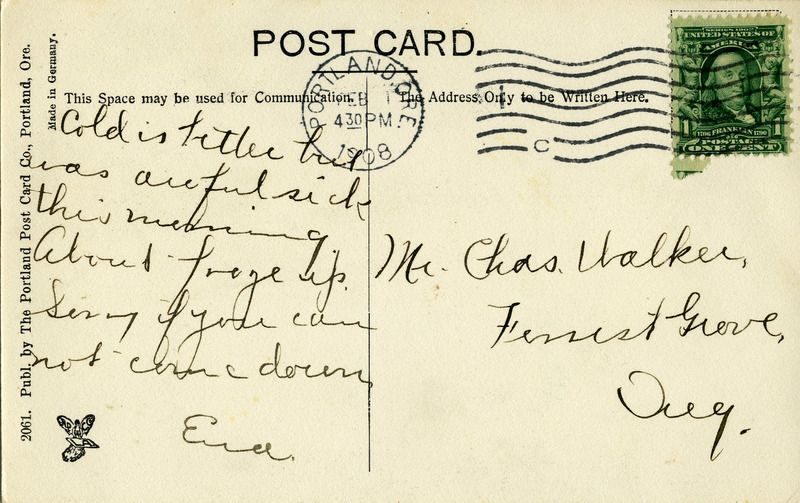 POST CARD.
This Space may be used for Communication.
The Address Only to be Written Here.
PORTLAND, ORE.
FEB 1
4 30 PM
1908
C
SERIES 1902
UNITED STATES OF
AMERICA
1706 FRANKLIN 1790
1 1
POSTAGE
ONE CENT
Cold is better but
was awful sick
this morning.
About froze up.
Sorry if you can
not come down
Mr. Chas. Walker,
Forrest Grove,
Oreg.
2061. Publ. by The Portland Post Card Co., Portland, Ore.
Made in Germany.